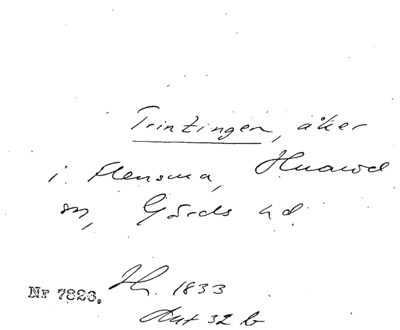 Trintzingen, åker
i Flensma, Hnarod
sn, Gärds hd.
Nr 7823. Hr. 1833
Akt 32 b